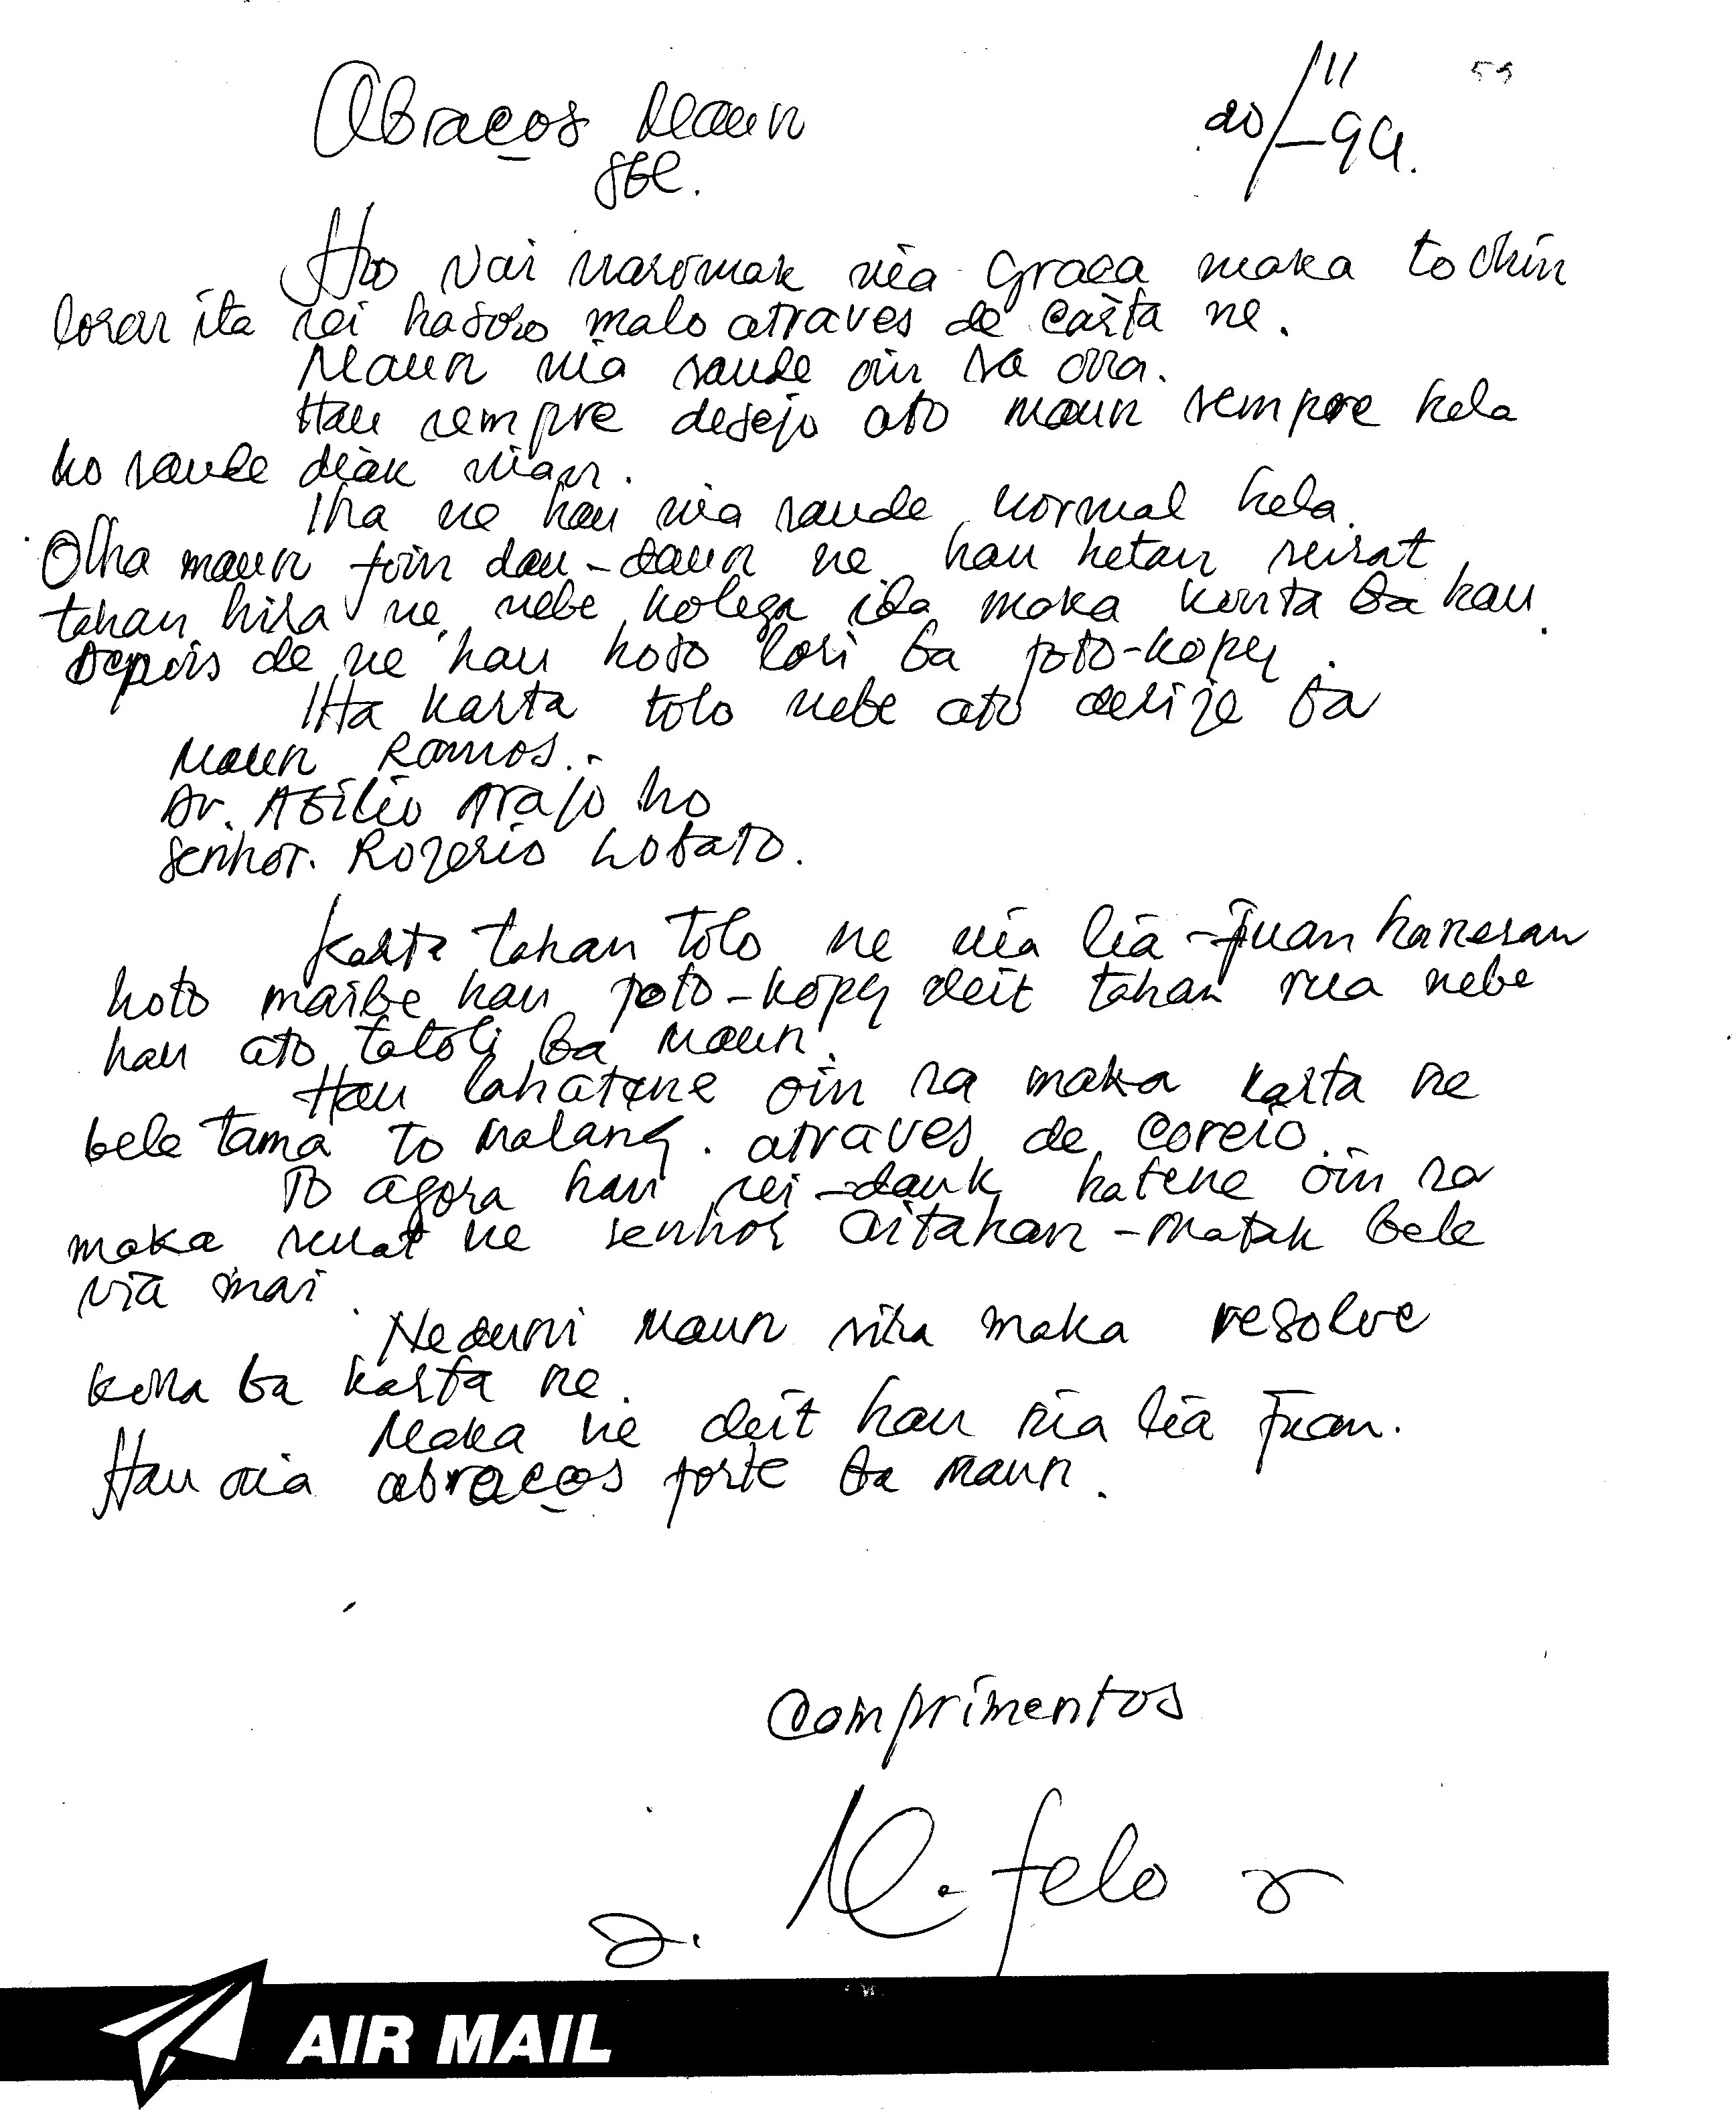 Abraços Maun
20/11-94.
Ho Nai maromak nia Graça maka to ohin
loron ita sei hasoro malo atraves de carta ne.
Maun nia saude oin sa ona.
Hau sempre desejo ato maun sempre hela
ho saude diak nian.
Iha ne hau nia saude normal hela.
Olha maun foin dau-daun ne hau hetan surat
tahan hira ne, nebe kolega ida maka konta ba hau.
Depois de ne hau hoto lori ba foto-kopy.
Iha karta tolo nebe ato derije ba
Maun Ramos.
Dr. Abilio Arajo ho
Senhor. Rogerio Lobato.
Karta tahan tolo ne nia lia-fuan hanesan
hoto maibe hau foto-kopy deit tahan rua nebe
hau ato tatoli ba Maun.
Hau lahatene oin sa maka karta ne
bele tama to Malang. atraves de coreio.
To agora hau sei-dauk hatene oin sa
maka surat ne senhor Aitahan-Matak bele
nia mai.
Neduni Maun sira maka resolve
kona ba karta ne.
Maka ne deit hau nia lia fuan.
Hau nia abraços forte ba Maun.
Comprimentos
M. felo
AIR MAIL